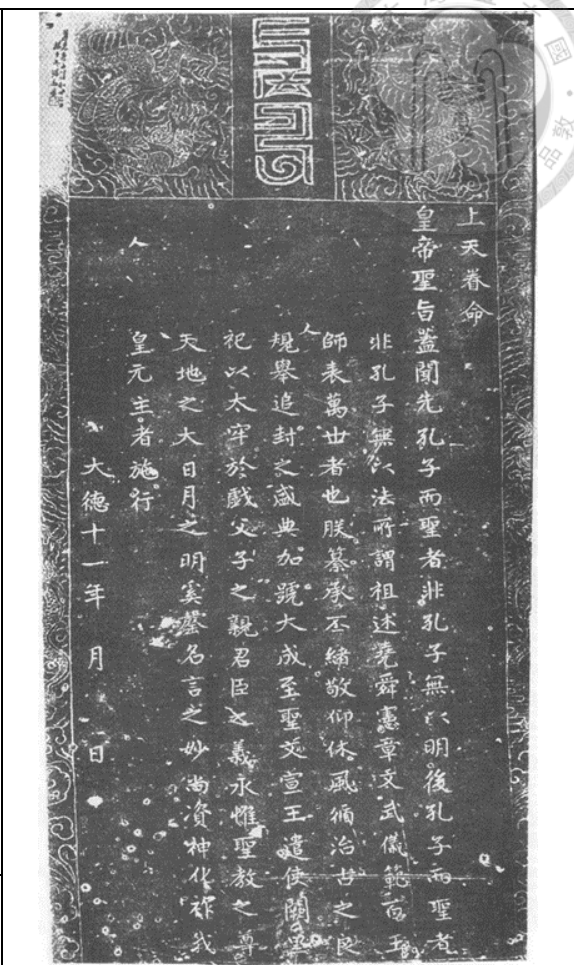 上天眷命
皇帝聖旨蓋聞先孔子而聖者非孔子無以明後孔子而聖者
非孔子無以法所謂祖述堯舜憲章文武儀範百王
師表萬世者也朕纂承丕緒敬仰休風循治古之良
規舉追封之盛典加號大成至聖文宣王遣使闕里
祀以太牢於戲父子之親君臣之義永惟聖教之尊
天地之大日月之明奚罄名言之妙尚資神化祚我
皇元主者施行
大德十一年 月 日